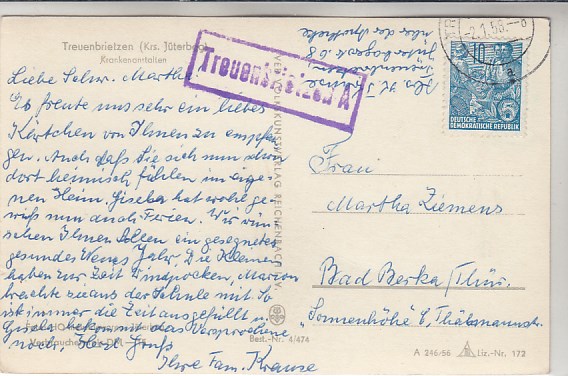 Treuenbrietzen (Krs. Jüterbog)
Krankenanstalten
Liebe Schw. Martha!
Es freute uns sehr ein liebes
Kärtchen von Ihnen zu empfan-
gen. Auch daß Sie sich nun schon
dort heimisch fühlen im eige-
nen Heim. Gisela hat wohl ge-
wiß nun auch Ferien. Wir wün-
schen Ihnen Allen ein gesegnetes
gesundes Neues Jahr. Die Kleinen
haben zur Zeit Windpocken, Marion
brachte sie aus der Schule mit. So
ist immer die Zeit ausgefüllt u.
Gisela bekommt das Versprochene
noch, Herzl Gruß
Ihre Fam. Krause
Treuenbrietzen A
Abs. H. Krause
Treuenbrietzen
Jüterbogerstr. 68
über der Apotheke
VERLAG REICHENBACH
Best.-Nr. 4/474
-2.1.58.-8
a
10
5
DEUTSCHE
DEMOKRATISCHE REPUBLIK
Frau
Martha Ziemens
Bad Berka/Thür.
"Sonnenhöhe"
A 246/56
Liz.-Nr. 172